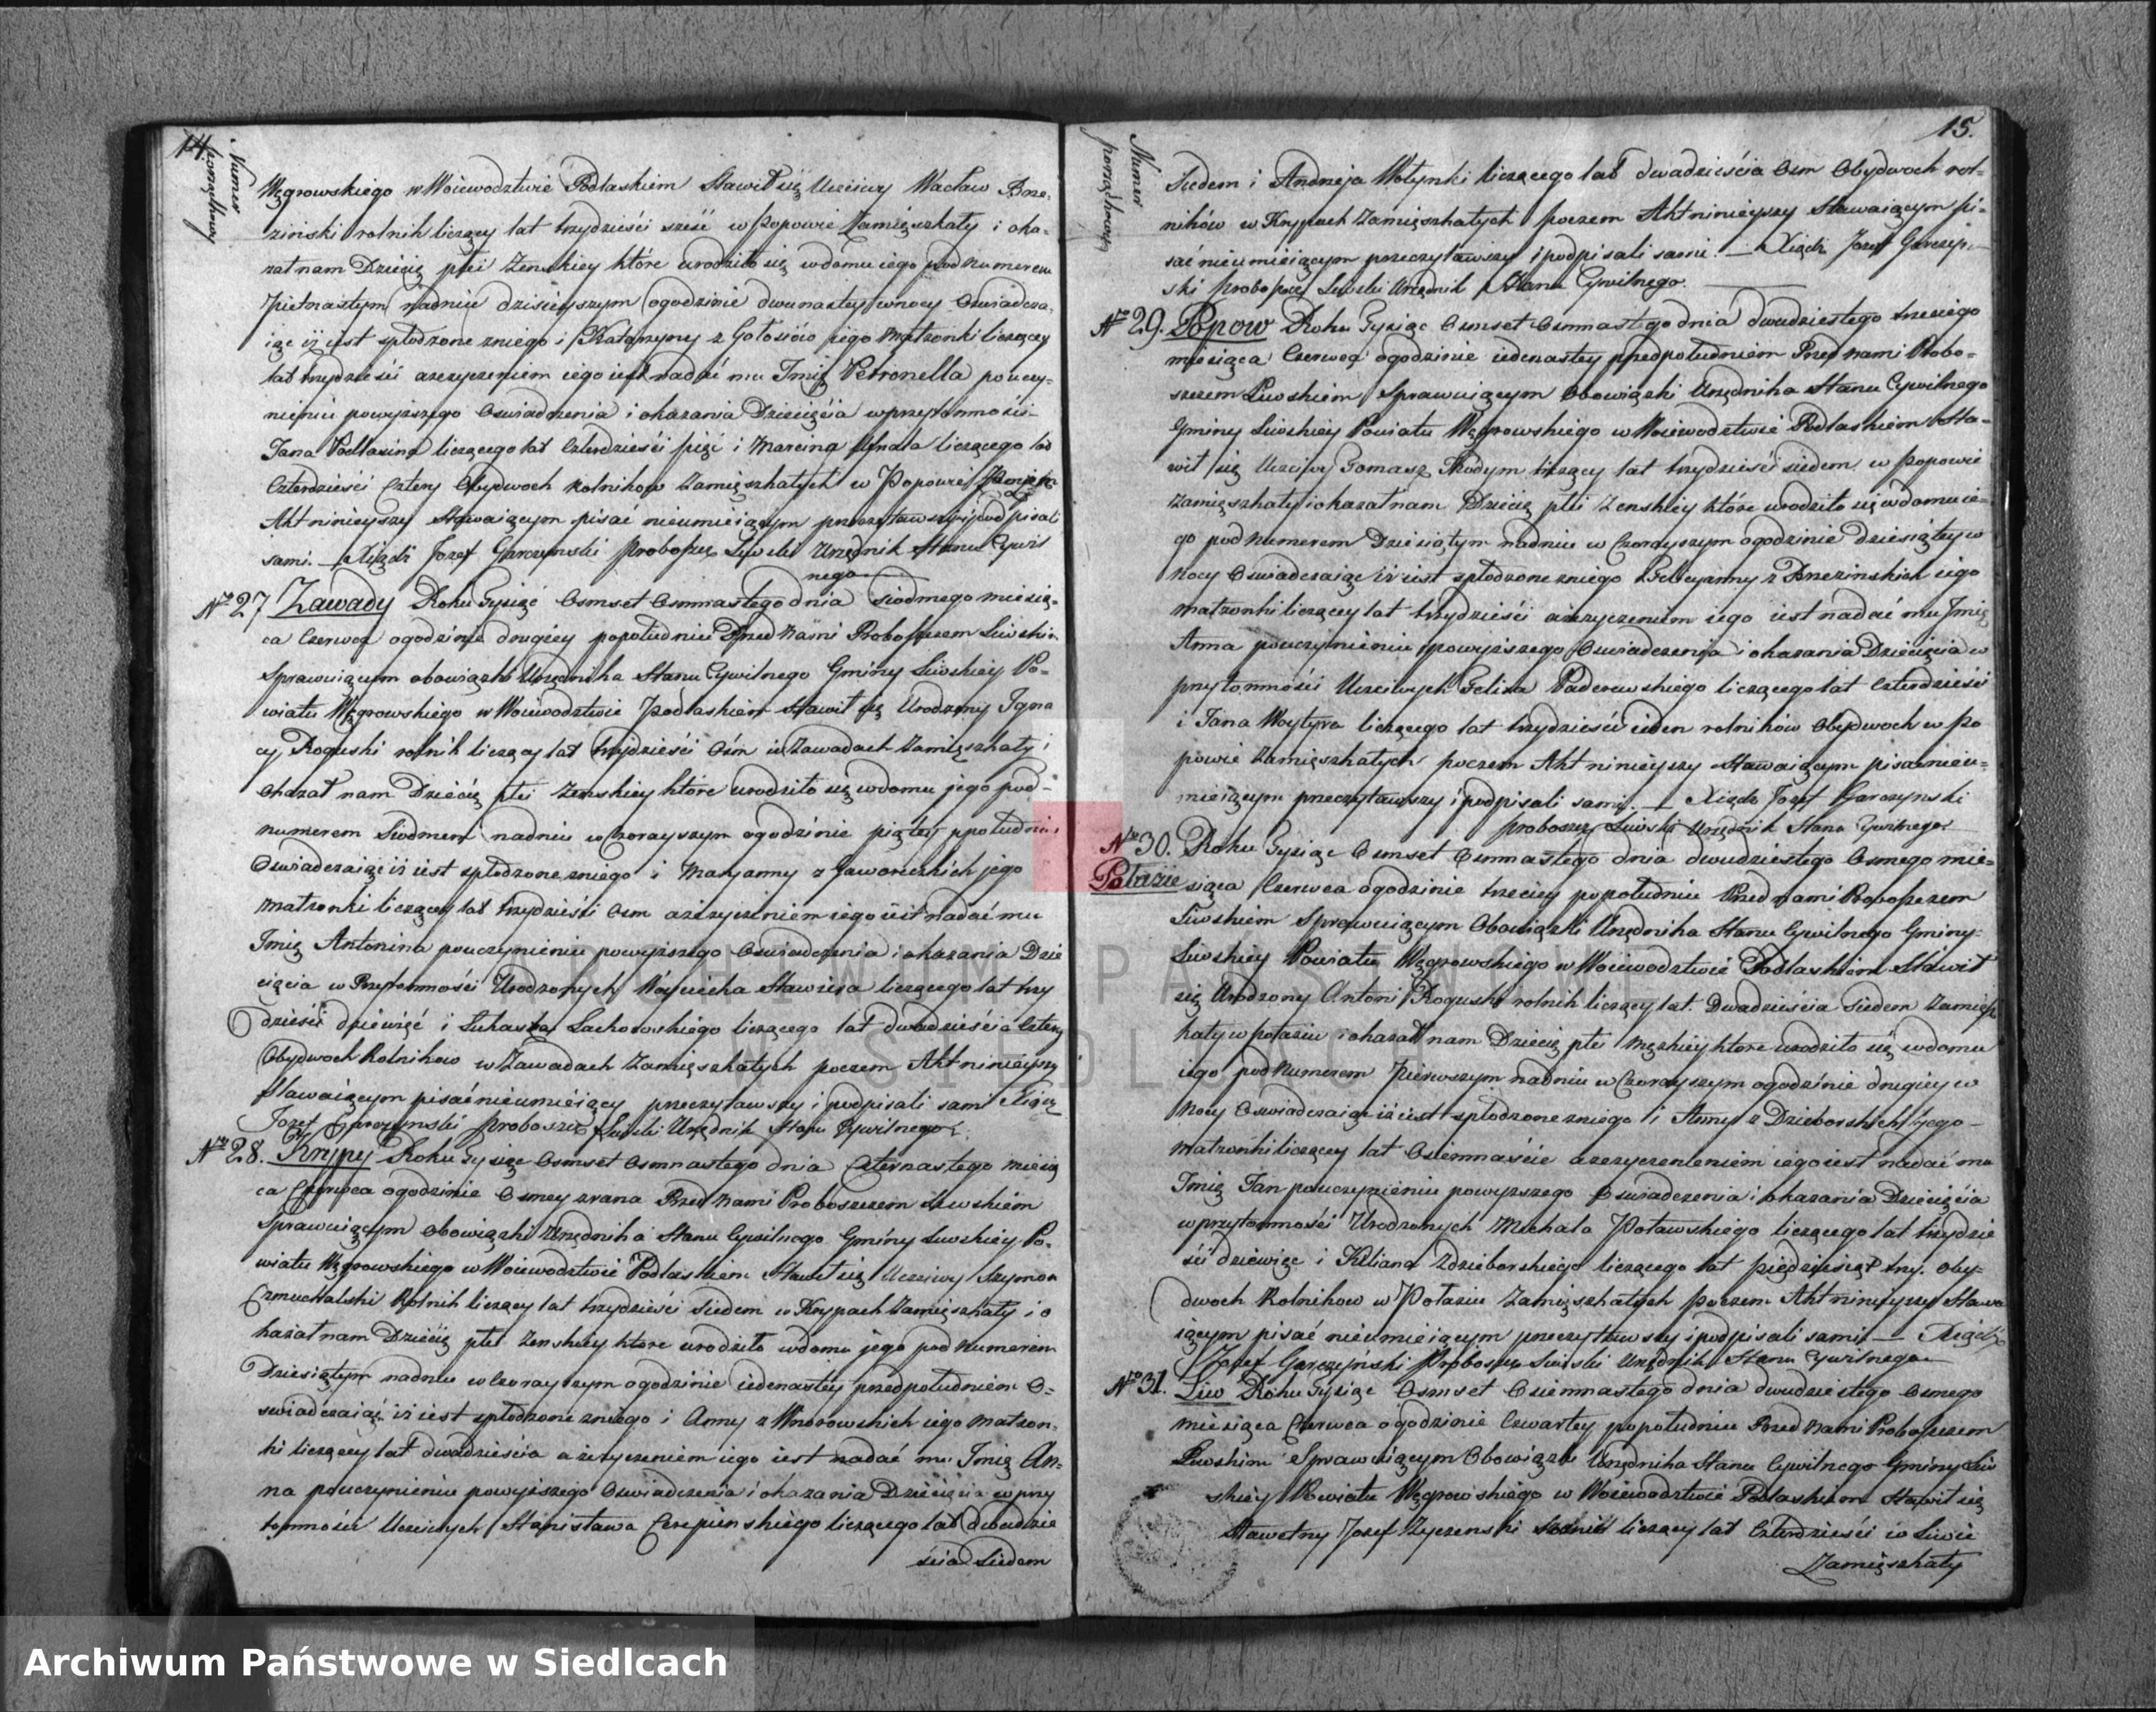 14.
Numer
porządkowy
Węgrowskiego w Woiewodztwie Podlaskiem Stawił się Uczciwy Wacław Brze-
ziński rolnik liczący lat trzydzieści sześć w Popowie Zamięszkały i oka-
zał nam Dziecię płci Zenskiey które urodziło się w domu iego pod Numerem
Piętnastym nadniu dzisieyszym ogodzinie dwunastey wnocy Oswiadcza-
iąc iż iest spłodzone zniego i Katarzyny z Gołosiów iego Małzonki liczącey
lat trzydzieści azezyczeniem iego iest nadać mu Imię Petronella pouczy-
nieniu powyższego Oswiadczenia i okazania Dziecięcia wprzytomności
Jana liczącego lat Czterdzieści pięć i Marcina liczącego lat
Czterdzieści Cztery Obydwoch Rolnikow Zamięszkałych w Popowie Poczem
Akt ninieyszy Stawaiącym pisać nieumieiącym przeczytawszy i podpisali
sami. — Xiądz Jozef Garczynski Proboszcz Liwski Urzędnik Stanu Cywil
nego
Nro 27 Zawady Roku Tysiąc Osmset Osmnastego dnia siodmego miesią-
ca Czerwca ogodzinie drugiey popołudniu Przed Nami Proboszczem Liwskim
Sprawuiącym obowiązki Urzędnika Stanu Cywilnego Gminy Liwskiey Po-
wiatu Węgrowskiego w Woiewodztwie Podlaskiem Stawił się Urodzony Igna
cy Roguski rolnik liczący lat trzydzieści Osm w Zawadach Zamięszkały i
Okazał nam Dziecię płci Zenskiey które urodziło się wdomu jego pod-
numerem Siodmem nadniu wczorayszym ogodzinie piątey popołudniu
Oswiadczaiąc iż iest spłodzone zniego i Maryanny z Jaworeckich jego
Małzonki liczącey lat trzydzieści Osm azezyczeniem iego iest nadać mu
Imię Antonina pouczynieniu powyższego Oswiadczenia i okazania Dzie
cięcia w Przytomności Urodzonych Woyciecha liczącego lat trzy
dzieści dziewięć i Łukasza Lachowskiego liczącego lat dwadzieścia Cztery
Obydwoch Rolnikow w Zawadach Zamięszkałych poczem Akt ninieyszy
Stawaiącym pisać nieumieiący przeczytawszy i podpisali sami Xiądz
Jozef Garczynski Proboszcz Liwski Urzędnik Stanu Cywilnego.
Nro 28. Krypy Roku Tysiąc Osmset Osmnastego dnia Czternastego miesią
ca Czerwca ogodzinie Osmey zrana Przed Nami Proboszczem Liwskiem
Sprawuiącym Obowiązki Urzędnika Stanu Cywilnego Gminy Liwskiey Po-
wiatu Węgrowskiego w Woiewodztwie Podlaskiem Stawił się Uczciwy Szymon
Czmuchalski Rolnik liczący lat trzydzieści siedem w Krypach Zamięszkały i o
kazał nam Dziecię płci Zenskiey ktore urodziło wdomu jego pod Numerem
Dziesiątym nadniu wczorayszym ogodzinie iedenastey przedpołudniem O-
swiadczaiąc iż iest spłodzone zniego i Anny z Wnorowskich iego Małzon-
ki liczącey lat dwadzieścia azezyczeniem iego iest nadać mu Imię An-
na pouczynieniu powyższego Oswiadczenia i okazania Dziecięcia wprzy
tomności Uczciwych Stanisława liczącego lat dwadzie
ścia Siedem
15.
Numer
porządkowy
Siedem i Andrzeja Wołynki liczącego lat dwadzieścia Osm Obydwoch rol-
ników w Krypach Zamięszkałych poczem Akt ninieyszy Stawaiącym pi-
sać nieumieiącym przeczytawszy i podpisali sami. — Xiądz Jozef Garczyń-
ski Proboszcz Liwski Urzędnik Stanu Cywilnego.
Nro 29. Popow Roku Tysiąc Osmset Osmnastego dnia dwudziestego trzeciego
miesiąca Czerwca ogodzinie iedenastey przedpołudniem Przed Nami Probo-
szczem Liwskiem Sprawuiącym Obowiązki Urzędnika Stanu Cywilnego
Gminy Liwskiey Powiatu Węgrowskiego w Woiewodztwie Podlaskiem Sta-
wił się Uczciwy Tomasz liczący lat trzydzieści siedem w Popowie
Zamięszkały i okazał nam Dziecię płci Zenskiey które urodziło się wdomu ie-
go pod Numerem Dziesiątym nadniu wczorayszym ogodzinie Dziesiątey w
Nocy Oswiadczaiąc iż iest spłodzone zniego i Felicyanny z Brzezinskich iego
Małzonki liczącey lat trzydzieści azezyczeniem iego iest nadać mu Imię
Anna pouczynieniu powyższego Oswiadczenia i okazania Dziecięcia w
przytomności Uczciwych Felixa Paderewskiego liczącego lat Czterdzieści
i Jana Woytyra liczącego lat trzydzieści ieden rolników Obydwoch w Po
powie Zamięszkałych poczem Akt ninieyszy Stawaiącym pisać nieu-
mieiącym przeczytawszy i podpisali sami. — Xiądz Jozef Garczynski
proboszcz Liwski Urzędnik Stanu Cywilnego.
Nro 30. Roku Tysiąc Osmset Osmnastego dnia dwudziestego Osmego mie-
Połazie siąca Czerwca ogodzinie trzeciey popołudniu Przed nami Proboszczem
Liwskiem Sprawuiącym Obowiązki Urzędnika Stanu Cywilnego Gminy
Liwskiey Powiatu Węgrowskiego w Woiewodztwie Podlaskiem Stawił
się Urodzony Antoni Roguski rolnik liczący lat Dwadzieścia Siedem Zamięsz
kały w połaziu i okazał nam Dziecię płci Męzkiey ktore urodziło się wdomu
iego pod Numerem Pierwszym nadniu wczorayszym ogodzinie drugiey w
Nocy Oswiadczaiąc iż iest spłodzone zniego i Anny z Dzieborskich jego
Małzonki liczącey lat Osiemnaście azezyczenieniem iego iest nadać mu
Imię Jan pouczynieniu powyższego Oswiadczenia i okazania Dziecięcia
wprzytomności Urodzonych Michała Poławskiego liczącego lat trzydzie
ści dziewięc i Kiliana Zdzieborskiego liczącego lat pięćdziesiąt trzy. Oby-
dwoch Rolnikow w Połaziu Zamięszkałych Poczem Akt ninieyszy Stawa
iącym pisać nieumieiącym przeczytawszy i podpisali sami — Xiądz
Jozef Garczyński Proboszcz Liwski Urzędnik Stanu Cywilnego
Nro 31. Liw Roku Tysiąc Osmset Osiemnastego dnia dwudziestego Osmego
miesiąca Czerwca ogodzinie Czwartey popołudniu Przed Nami Proboszczem
Liwskim Sprawuiącym Obowiązki Urzędnika Stanu Cywilnego Gminy Liw
skiey Powiatu Węgrowskiego w Woiewodztwie Podlaskiem Stawił się
Sławetny Jozef Zyczenski liczący lat Czterdzieści w Liwie
Zamięszkały
ARCHIWUM PAŃSTWOWE
W SIEDLCACH
Archiwum Państwowe w Siedlcach